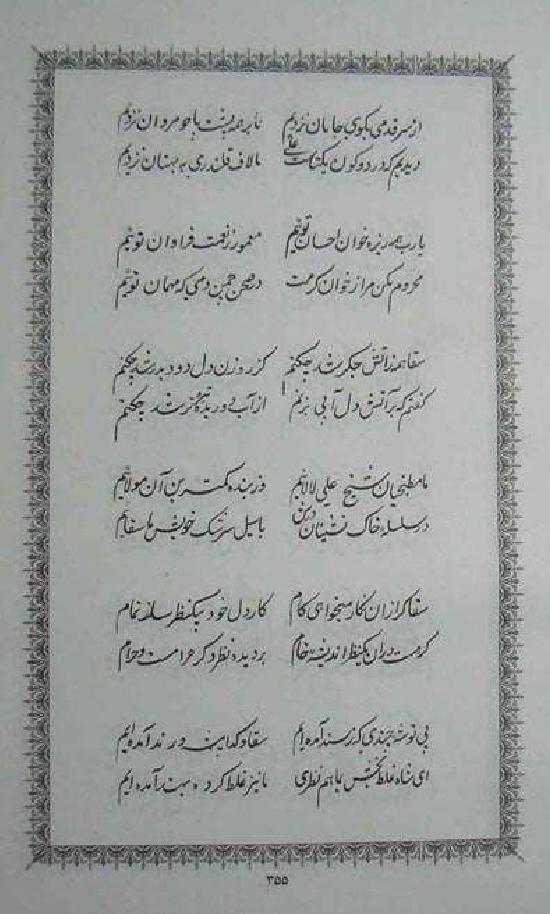 از سر قدمی بکوی جانان نزدیم تا بر همه پشت پا چو مردان نزدیم
دیدیم که در دو کون یکتاست علی ما لاف قلندری به بهتان نزدیم
یارب همه ریزه خوان احسان توئیم معمور ز نعمت فراوان توئیم
محروم مکن مرا ز خوان کرمت در صحن چمن دمی که مهمان توئیم
سقا همه ز آتش جگر شد چکنم کز روزن دل دود بدر شد چکنم
گفتم که بر آتش دل آبی بزنم از آب دو دیده تیزتر شد چکنم
ما مطبخیان شیخ علی لالائیم در بنده کمترین آن مولائیم
در سلسله خاک نشینان درش با سیل سرشک خویش ما سقائیم
سقا گر از آن نگار میخواهی کام کار دل خود بیک نظر ساز تمام
گر مست در آن یکنظر اندیشه خام بر دیده نظر دگر حرامست و حرام
بی توشه چندی که رسند آمده ایم سقا و گدا پیشه و رند آمده ایم
ای شاه غلط بخش بما هم نظری ما نیز غلط کرده بهند آمده ایم
۳۵۵